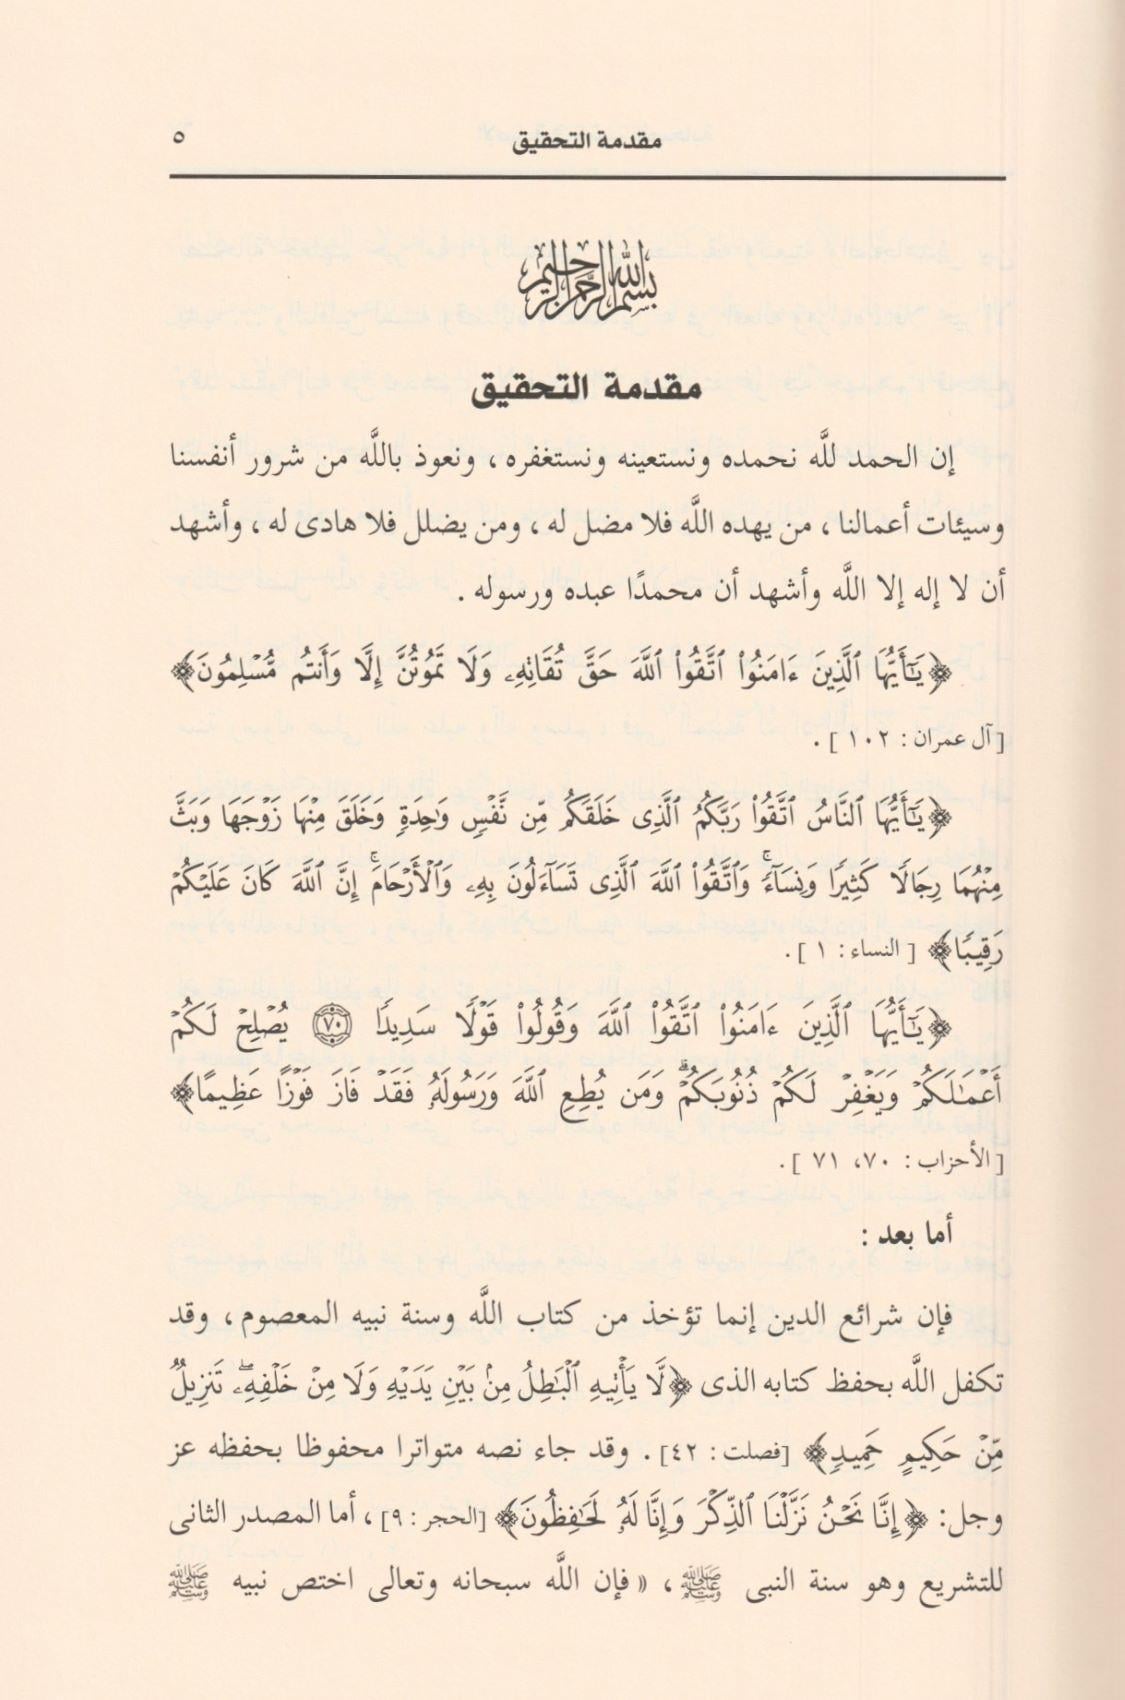 مقدمة التحقيق ٥
بسم الله الرحمن الرحيم
مقدمة التحقيق
إن الحمد للَّه نحمده ونستعينه ونستغفره ، ونعوذ باللَّه من شرور أنفسنا
وسيئات أعمالنا ، من يهده اللَّه فلا مضل له ، ومن يضلل فلا هادى له ، وأشهد
أن لا إله إلا اللَّه وأشهد أن محمدًا عبده ورسوله .
﴿يَـٰٓأَيُّهَا ٱلَّذِينَ ءَامَنُوا۟ ٱتَّقُوا۟ ٱللَّهَ حَقَّ تُقَاتِهِۦ وَلَا تَمُوتُنَّ إِلَّا وَأَنتُم مُّسْلِمُونَ﴾
[آل عمران : ١٠٢ ] .
﴿يَـٰٓأَيُّهَا ٱلنَّاسُ ٱتَّقُوا۟ رَبَّكُمُ ٱلَّذِى خَلَقَكُم مِّن نَّفْسٍ وَٰحِدَةٍ وَخَلَقَ مِنْهَا زَوْجَهَا وَبَثَّ
مِنْهُمَا رِجَالًا كَثِيرًا وَنِسَآءً ۚ وَٱتَّقُوا۟ ٱللَّهَ ٱلَّذِى تَسَآءَلُونَ بِهِۦ وَٱلْأَرْحَامَ ۚ إِنَّ ٱللَّهَ كَانَ عَلَيْكُمْ
رَقِيبًا﴾ [ النساء : ١ ] .
﴿يَـٰٓأَيُّهَا ٱلَّذِينَ ءَامَنُوا۟ ٱتَّقُوا۟ ٱللَّهَ وَقُولُوا۟ قَوْلًا سَدِيدًا ٧٠ يُصْلِحْ لَكُمْ
أَعْمَـٰلَكُمْ وَيَغْفِرْ لَكُمْ ذُنُوبَكُمْ ۗ وَمَن يُطِعِ ٱللَّهَ وَرَسُولَهُۥ فَقَدْ فَازَ فَوْزًا عَظِيمًا﴾
[الأحزاب : ٧٠، ٧١ ] .
أما بعد :
فإن شرائع الدين إنما تؤخذ من كتاب اللَّه وسنة نبيه المعصوم ، وقد
تكفل اللَّه بحفظ كتابه الذى ﴿لَّا يَأْتِيهِ ٱلْبَـٰطِلُ مِنۢ بَيْنِ يَدَيْهِ وَلَا مِنْ خَلْفِهِۦ ۖ تَنزِيلٌ
مِّنْ حَكِيمٍ حَمِيدٍ﴾ [فصلت : ٤٢] . وقد جاء نصه متواترا محفوظا بحفظه عز
وجل: ﴿إِنَّا نَحْنُ نَزَّلْنَا ٱلذِّكْرَ وَإِنَّا لَهُۥ لَحَـٰفِظُونَ﴾ [الحجر : ٩] ، أما المصدر الثانى
للتشريع وهو سنة النبى ﷺ ، « فإن اللَّه سبحانه وتعالى اختص نبيه ﷺ